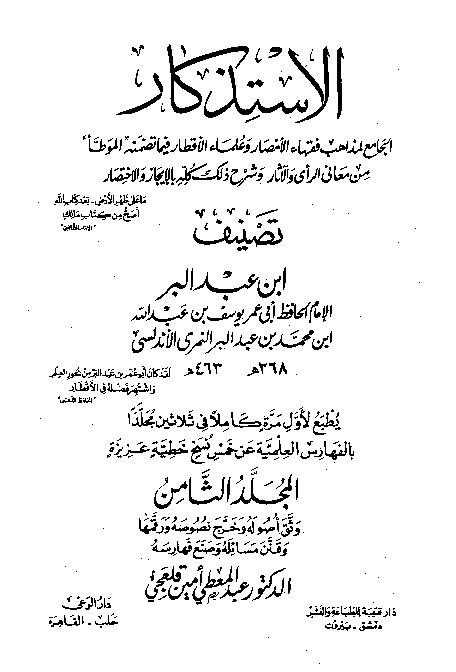 الاستذكار
الجامع لمذاهب فقهاء الأمصار وعلماء الأقطار فيما تضمنه الموطأ
من معاني الرأي والآثار وشرح ذلك كله بالإيجاز والاختصار
ما على ظهر الأرض - بعد كتاب الله
أصح من كتاب مالك
"الإمام الشافعي"
تصنيف
ابن عبد البر
الإمام الحافظ أبي عمر يوسف بن عبد الله
ابن محمد بن عبد البر النمري الأندلسي
٣٦٨هـ - ٤٦٣هـ
لقد كان أبو عمر بن عبد البر من بحور العلم
واشتهر فضله في الأقطار
يطبع لأول مرة كاملا في ثلاثين مجلدا
بالفهارس العلمية عن خمس نسخ خطية عزيزة
المجلد الثامن
وثق أصوله وخرج نصوصه ورقمها
وقنن مسائله وصنع فهارسه
الدكتور عبد المعطي أمين قلعجي
دار قتيبة للطباعة والنشر
دمشق - بيروت
دار الوعي
حلب - القاهرة